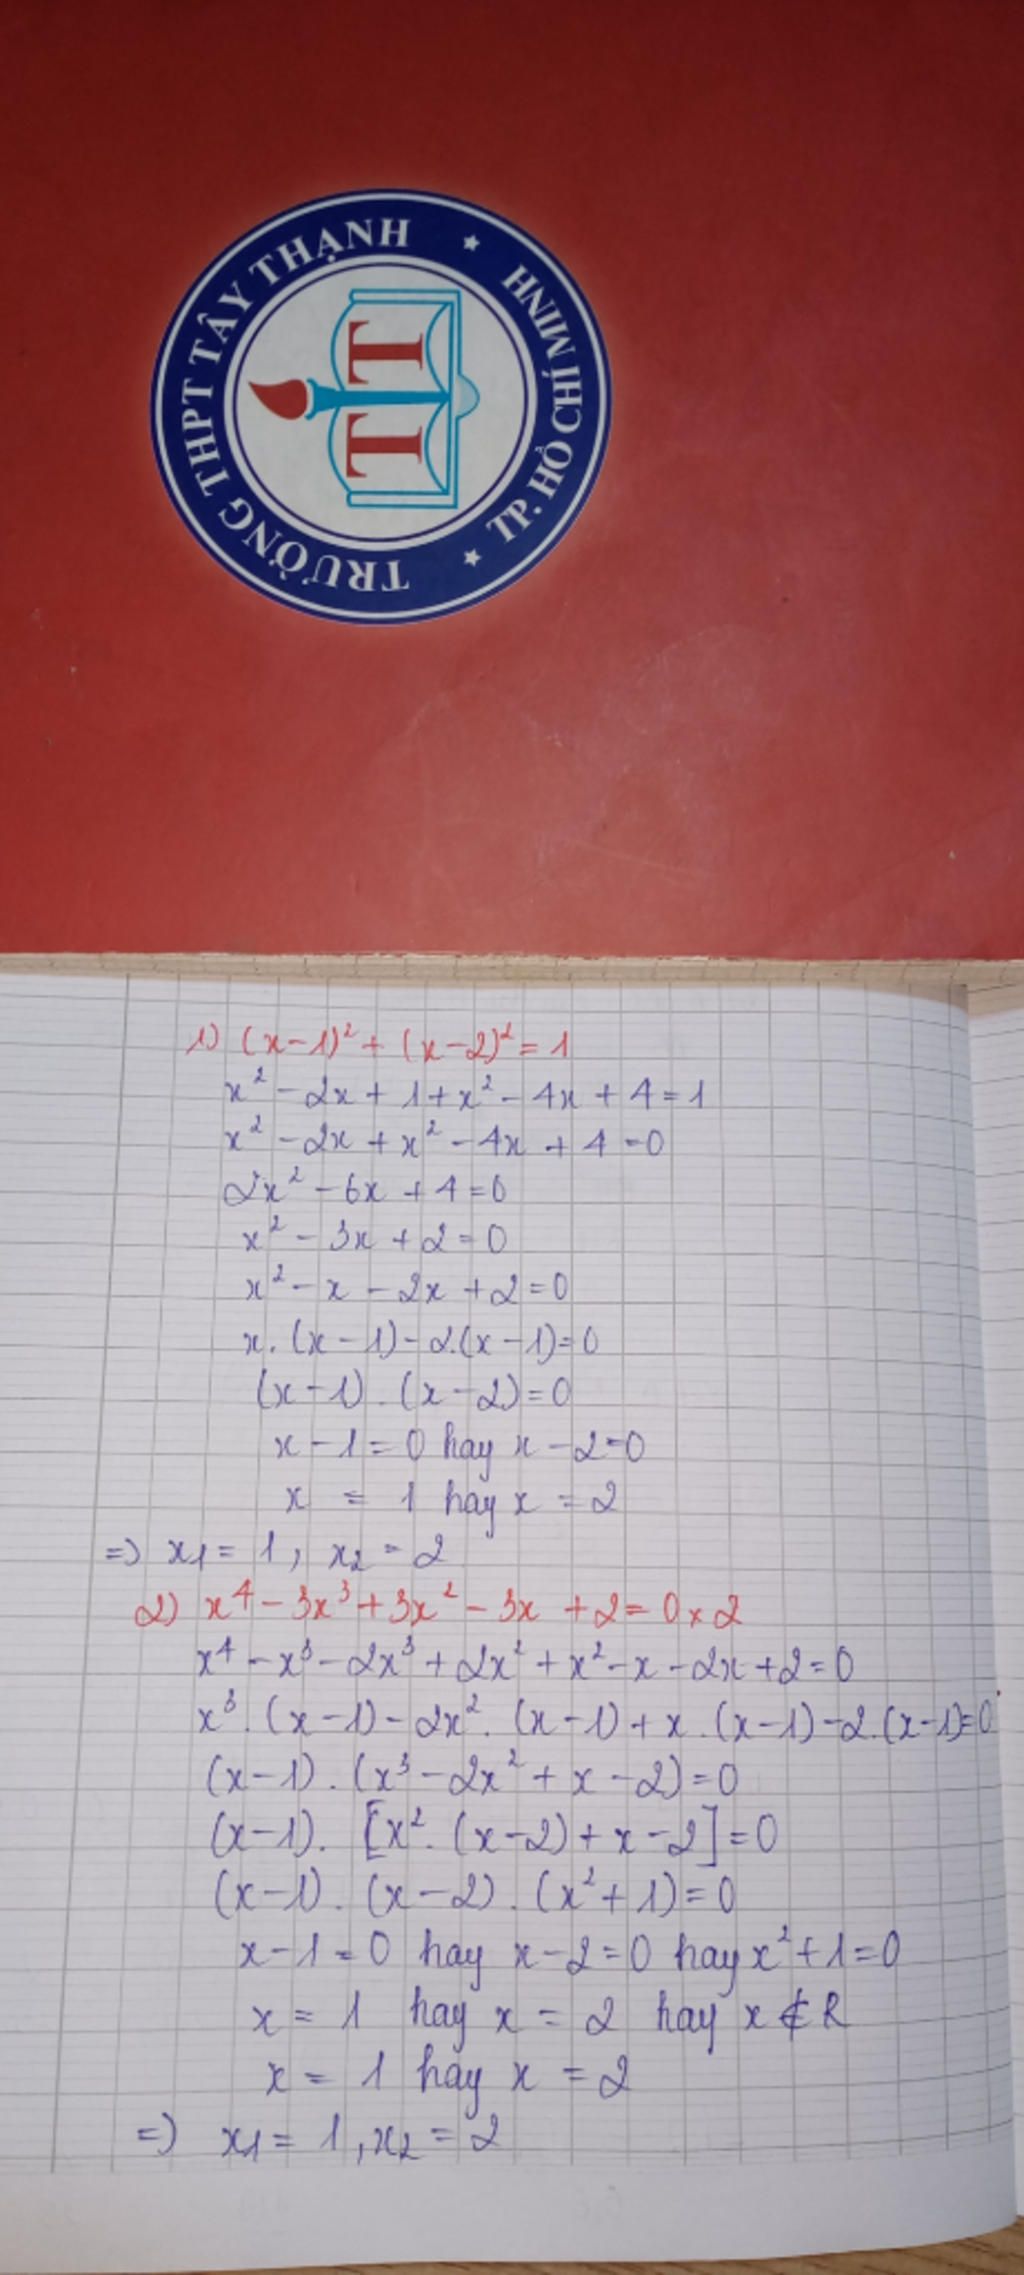 TRƯỜNG THPT TÂY THẠNH
TP. HỒ CHÍ MINH
TT
1) (x-1)² + (x-2)² = 1
x² - 2x + 1 + x² - 4x + 4 = 1
x² - 2x + x² - 4x + 4 = 0
2x² - 6x + 4 = 0
x² - 3x + 2 = 0
x² - x - 2x + 2 = 0
x. (x - 1) - 2.(x - 1) = 0
(x - 1) . (x - 2) = 0
x - 1 = 0 hay x - 2 = 0
x = 1 hay x = 2
=> x1 = 1, x2 = 2
2) x⁴ - 3x³ + 3x² - 3x + 2 = 0 x 2
x⁴ - x³ - 2x³ + 2x² + x² - x - 2x + 2 = 0
x³. (x - 1) - 2x². (x - 1) + x . (x - 1) - 2.(x - 1) = 0
(x - 1) . (x³ - 2x² + x - 2) = 0
(x - 1). [x². (x - 2) + x - 2] = 0
(x - 1) . (x - 2) . (x² + 1) = 0
x - 1 = 0 hay x - 2 = 0 hay x² + 1 = 0
x = 1 hay x = 2 hay x ∉ R
x = 1 hay x = 2
=> x1 = 1, x2 = 2